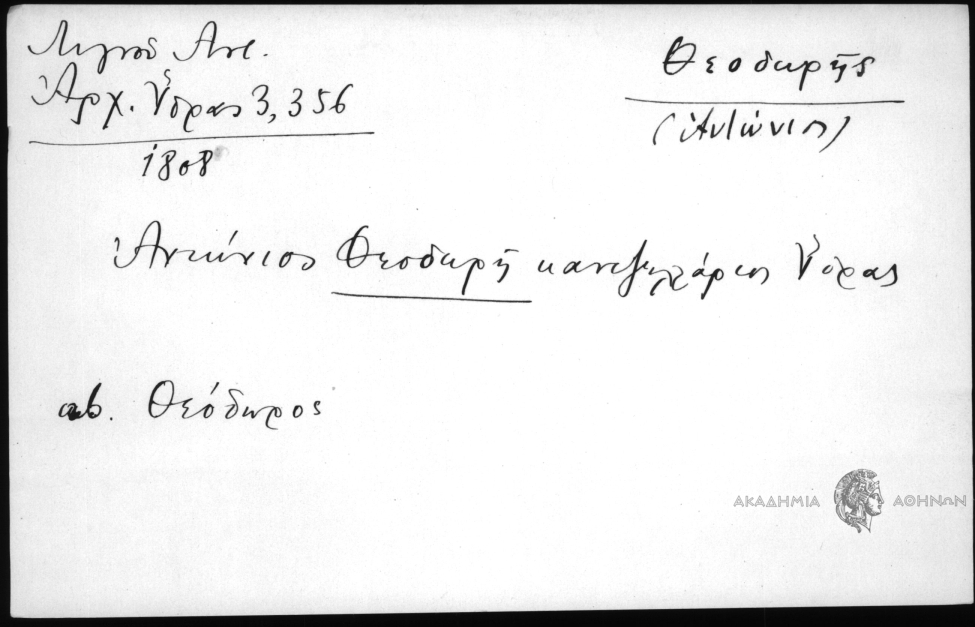 Λιγνοῦ Ἀντ.
Ἀρχ. Ὕδρας 3, 356
1808
Θεοδωρῆς
(Ἀντώνιος)
Ἀντώνιος Θεοδωρῆ καντζελλάριος Ὕδρας
ab. Θεόδωρος
ΑΚΑΔΗΜΙΑ ΑΘΗΝΩΝ